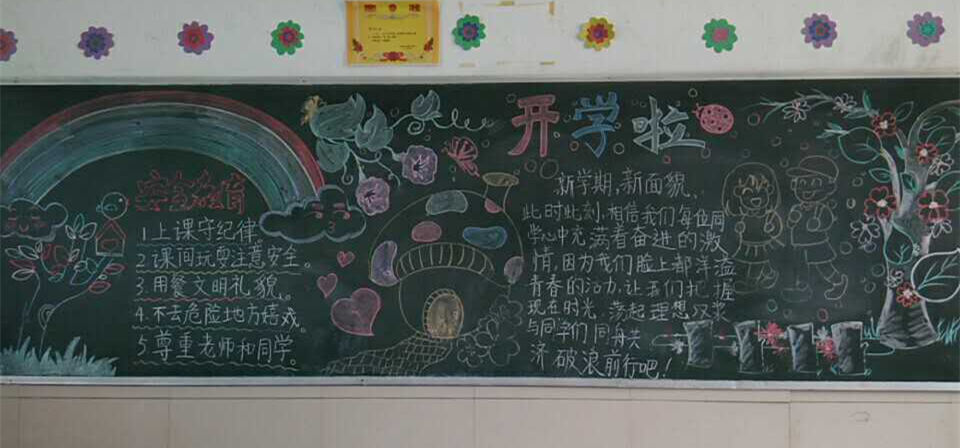 开学啦
安全教育
1.上课守纪律
2.课间玩耍注意安全。
3.用餐文明礼貌。
4.不去危险地方嬉戏。
5.尊重老师和同学。
新学期,新面貌、
此时此刻,相信我们每位同
学心中充满着奋进的激
情,因为我们脸上都洋溢
青春的活力,让我们把握
现在时光,荡起理想双桨
与同学们同舟共
济破浪前行吧!